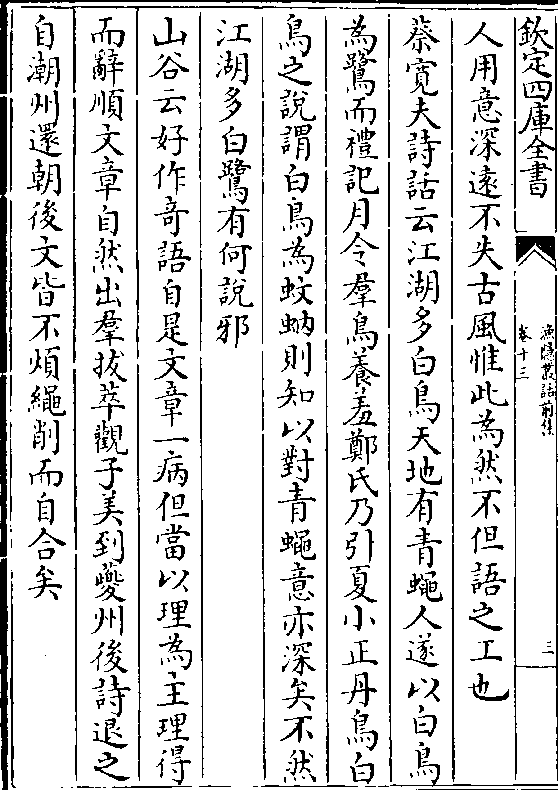 欽定四庫全書
漁隱叢話前集
卷十三
三
人用意深遠不失古風惟此為然不但語之工也
蔡寛夫詩話云江湖多白鳥天地有青蠅人遂以白鳥
為鷺而禮記月令羣鳥養羞鄭氏乃引夏小正丹鳥白
鳥之說謂白鳥為蚊蚋則知以對青蠅意亦深矣不然
江湖多白鷺有何說邪
山谷云好作奇語自是文章一病但當以理為主理得
而辭順文章自然出羣拔萃觀子美到夔州後詩退之
自潮州還朝後文皆不煩繩削而自合矣